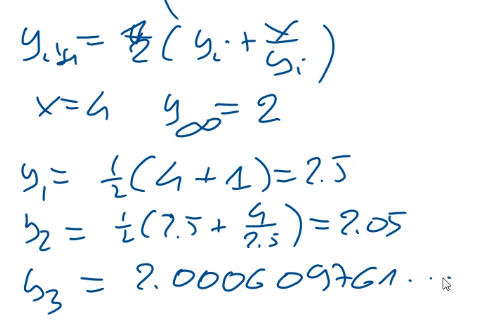 y_{i+1} = 1/2 ( y_i + x/y_i )
x = 4 y_∞ = 2
y_1 = 1/2 (4 + 1) = 2.5
y_2 = 1/2 (2.5 + 4/2.5) = 2.05
y_3 = 2.000609761...